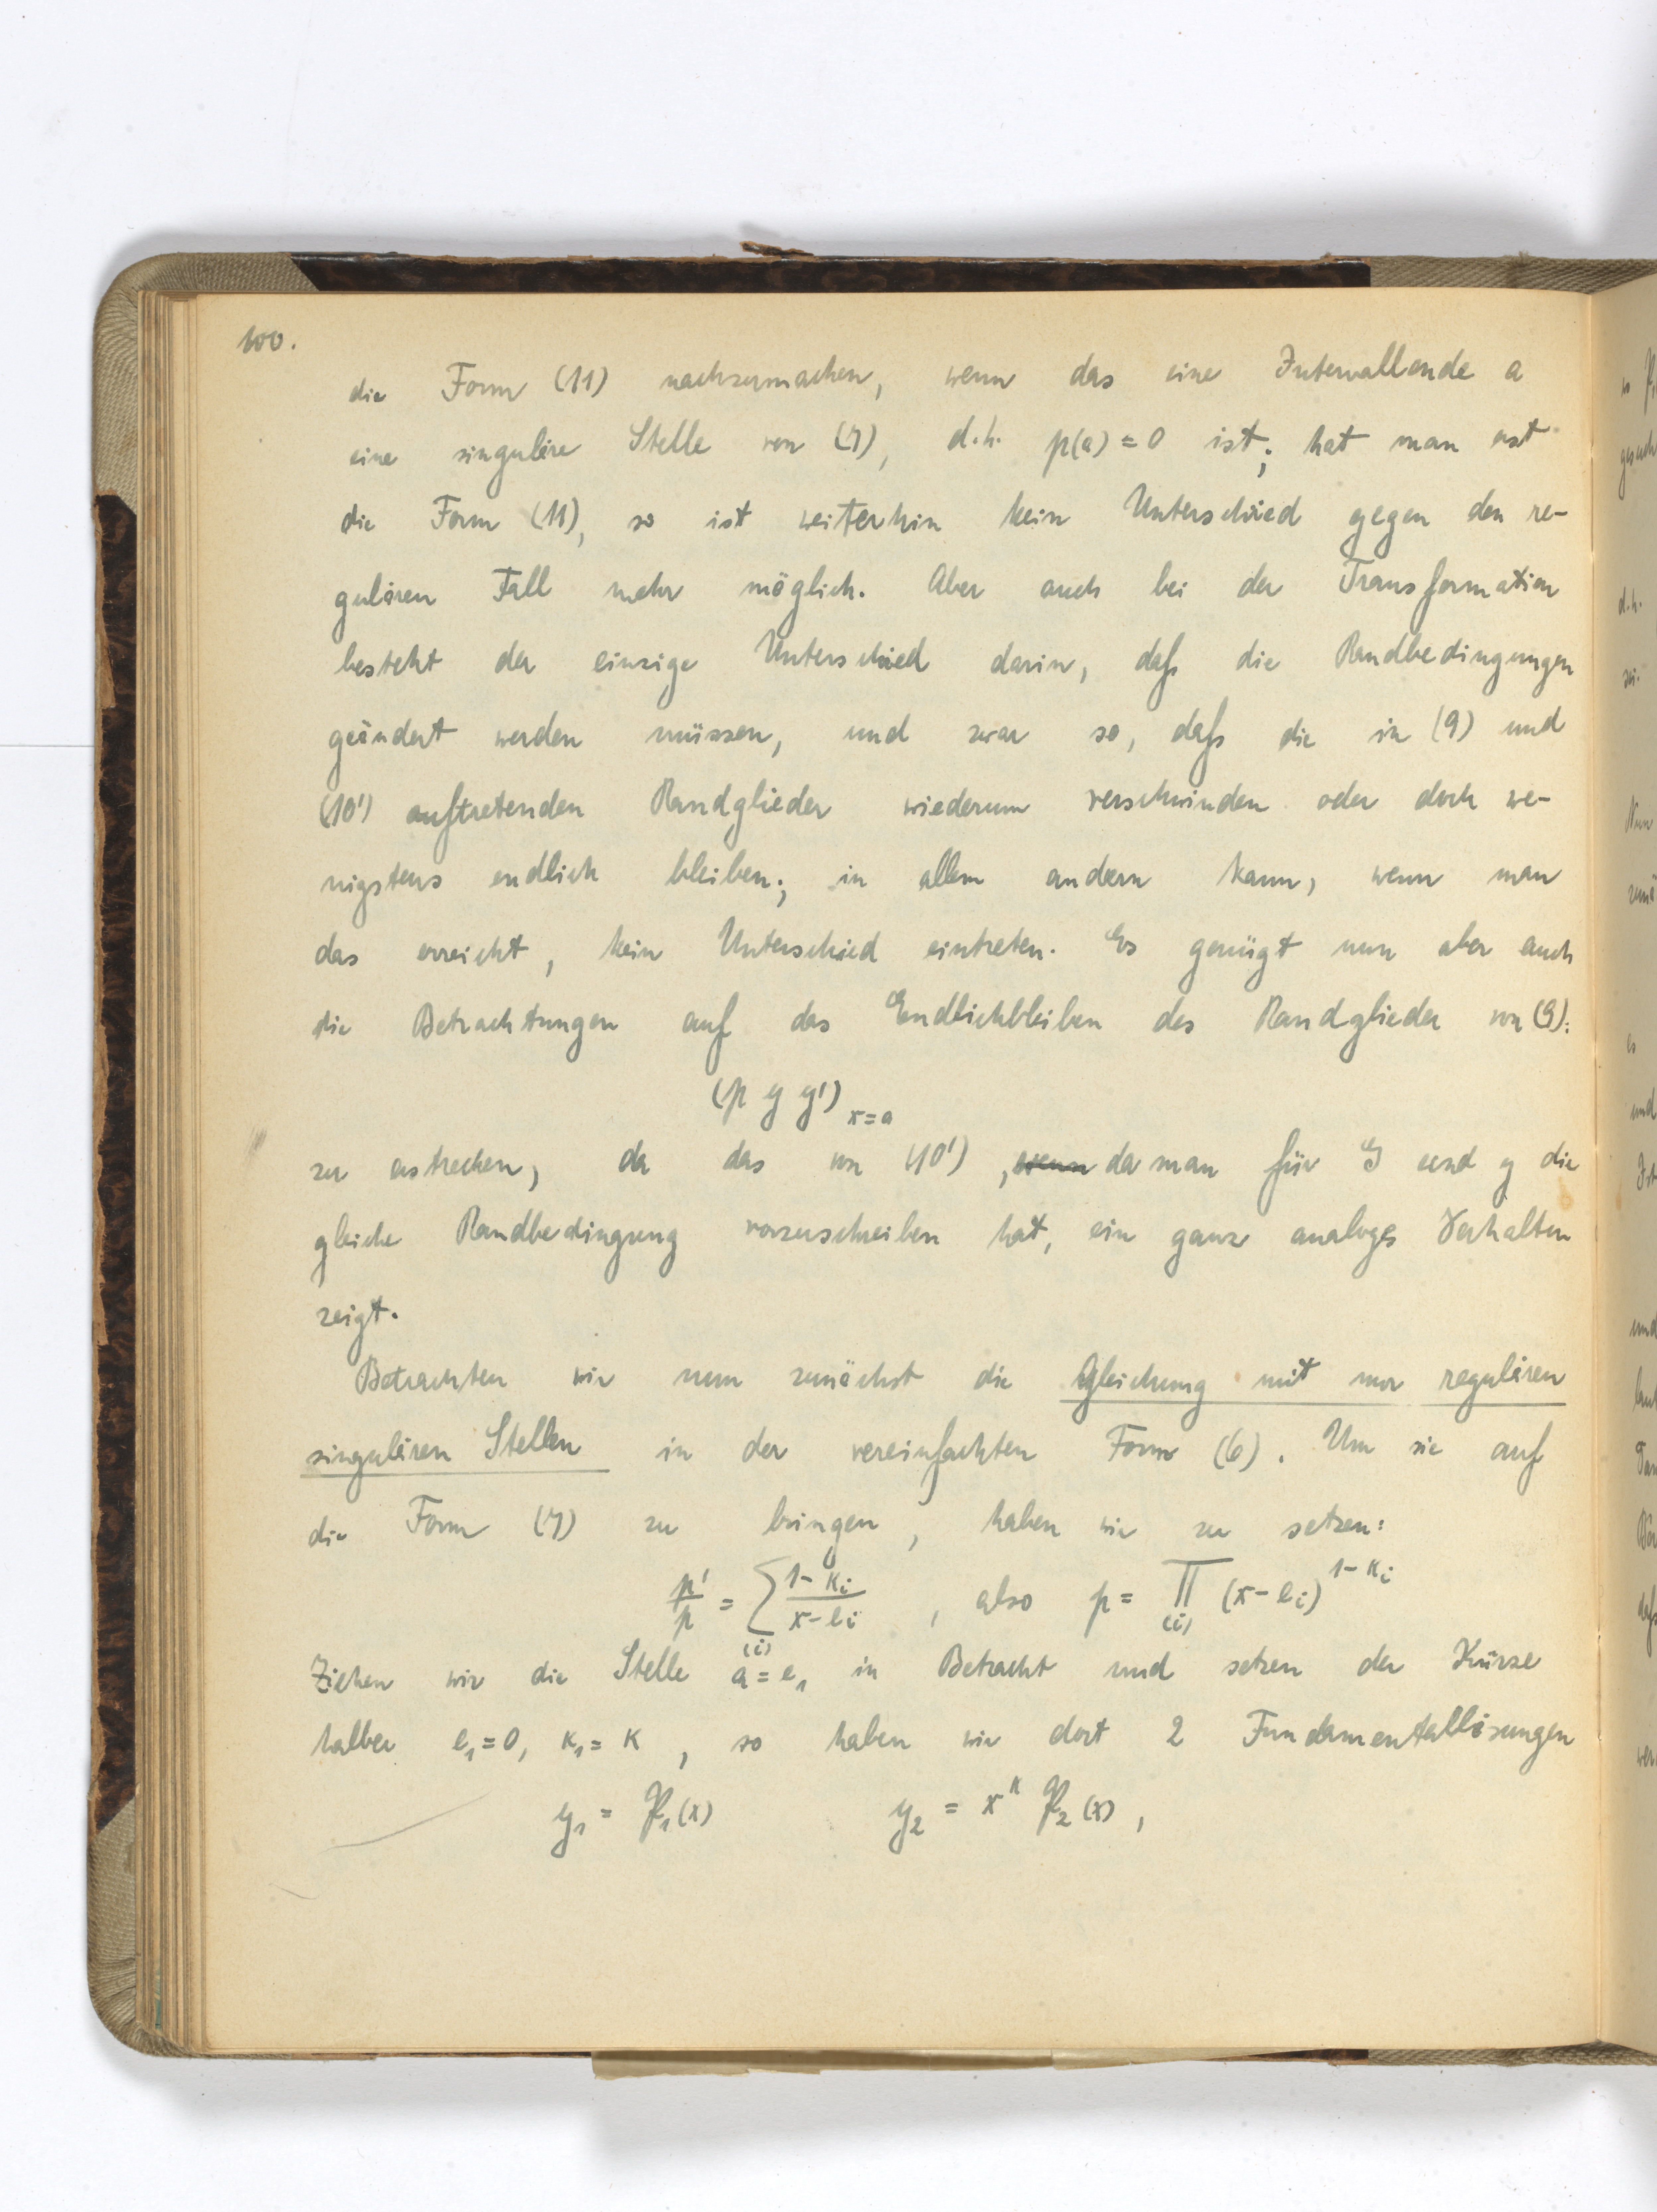 100.
die Form (11) nachzumachen, wenn das eine Intervallende a
eine singuläre Stelle von (7), d.h. p(a) = 0 ist; hat man erst
die Form (11), so ist weiterhin kein Unterschied gegen den re-
gulären Fall mehr möglich. Aber auch bei der Transformation
besteht der einzige Unterschied darin, daß die Randbedingungen
geändert werden müssen, und zwar so, daß die in (9) und
(10') auftretenden Randglieder wiederum verschwinden oder doch we-
nigstens endlich bleiben; in allem andern kann, wenn man
das erreicht, kein Unterschied eintreten. Es genügt nun aber auch
die Betrachtungen auf das Endlichbleiben des Randglieder von (9):
(p y y')_{x=a}
zu erstrecken, da das von (10'), ~~wenn~~ da man für G und y die
gleiche Randbedingung vorzuschreiben hat, ein ganz analoges Verhalten
zeigt.
Betrachten wir nun zunächst die Gleichung mit nur regulären
singulären Stellen in der vereinfachten Form (6). Um sie auf
die Form (7) zu bringen, haben wir zu setzen:
p'/p = ∑_{(i)} (1-κ_i)/(x-e_i), also p = ∏_{(i)} (x-e_i)^{1-κ_i}
Ziehen wir die Stelle a = e_1 in Betracht und setzen der Kürze
halber e_1 = 0, κ_1 = κ, so haben wir dort 2 Fundamentallösungen
y_1 = 𝔓_1(x) y_2 = x^κ 𝔓_2(x),